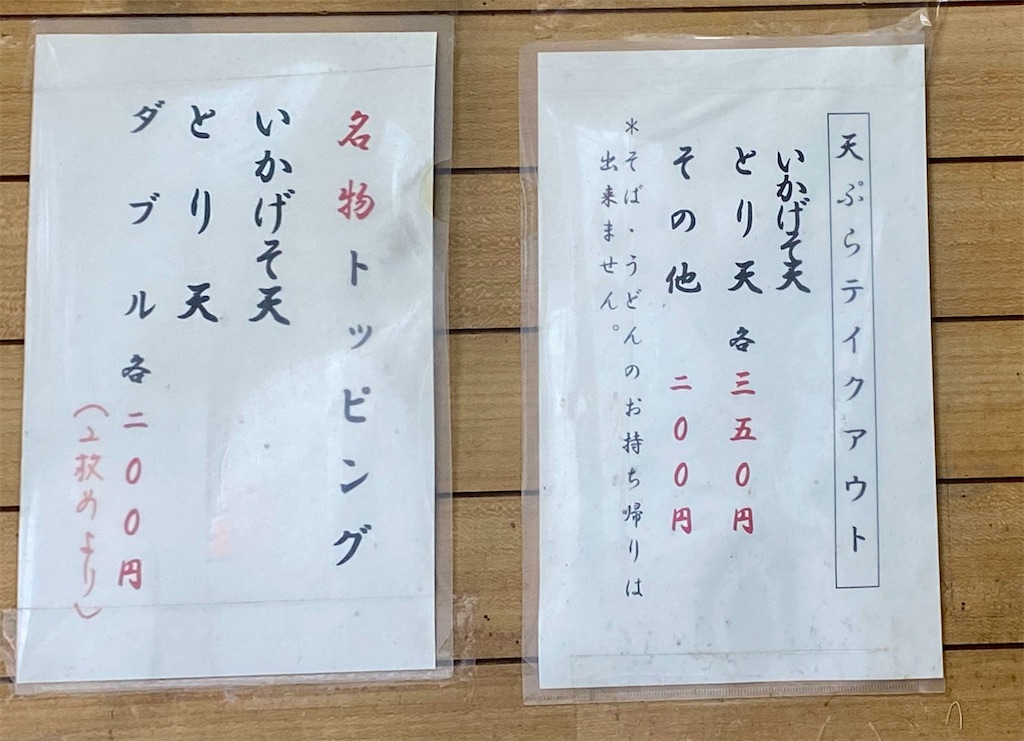 名物トッピング
いかげそ天
とり天
ダブル各二〇〇円
（2枚めより）
天ぷらテイクアウト
いかげそ天
とり天 各三五〇円
その他 二〇〇円
＊そば・うどんのお持ち帰りは
出来ません。